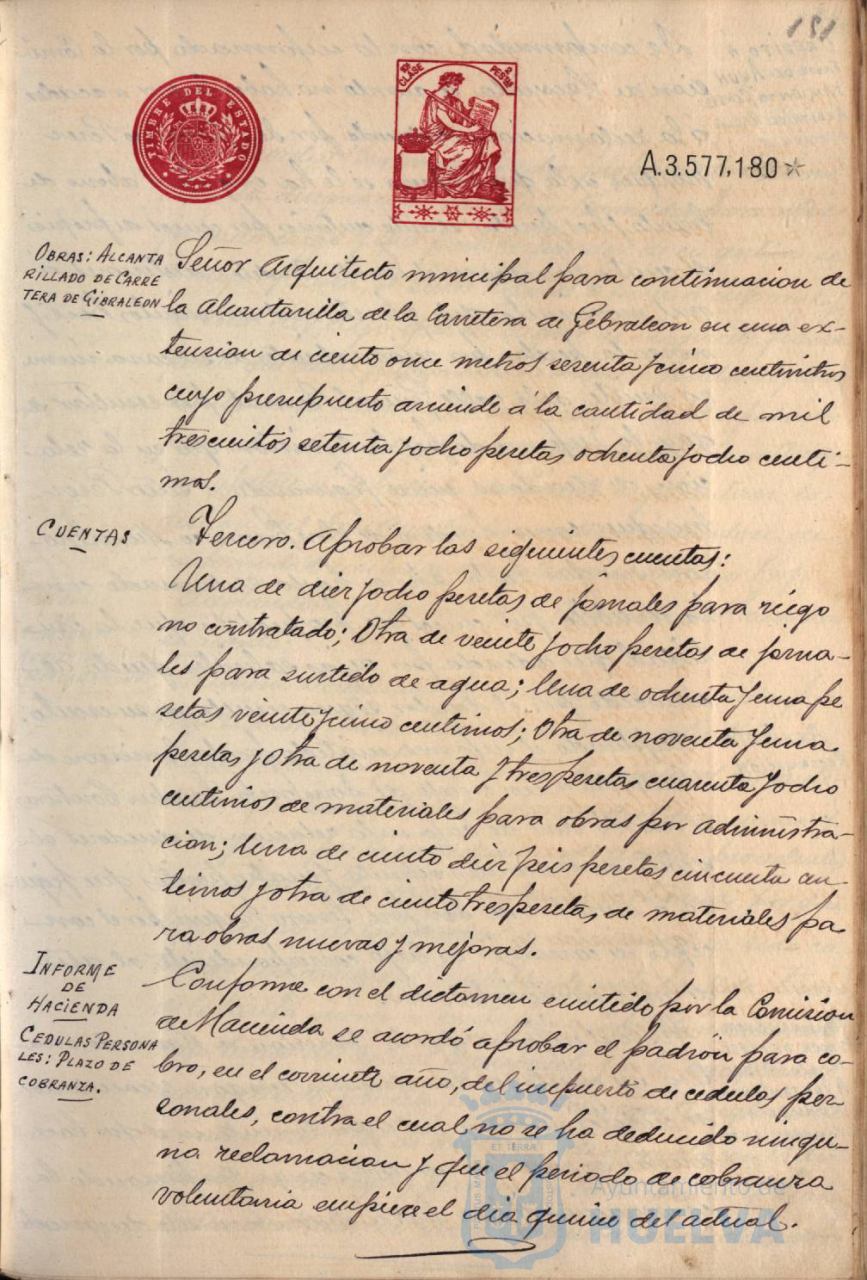 151
TIMBRE DEL ESTADO
10ª CLASE
2 PESTAS
A.3.577,180*
OBRAS: ALCANTA
RILLADO DE CARRE
TERA DE GIBRALEON
Señor Arquitecto municipal para continuacion de
la Alcantarilla de la Carretera de Gibraleon en una ex-
tension de ciento once metros sesenta y cinco centimetros
cuyo presupuesto asciende á la cantidad de mil
trescientos setenta y ocho pesetas ochenta y ocho centi-
mos.
CUENTAS
Tercero. Aprobar las siguientes cuentas:
Una de diez y ocho pesetas de jornales para riego
no contratado; Otra de veinte y ocho pesetas de jorna-
les para surtido de agua; Una de ochenta y una pe
setas veinte y cinco centimos; Otra de noventa y una
pesetas y Otra de noventa y tres pesetas cuarenta y ocho
centimos de materiales para obras por administra-
cion; Una de ciento diez y seis pesetas cincuenta cen
timos y otra de ciento tres pesetas, de materiales pa
ra obras nuevas y mejoras.
INFORME
DE
HACIENDA
CEDULAS PERSONA
LES: PLAZO DE
COBRANZA.
Conforme con el dictamen emitido por la Comision
de Hacienda se acordó aprobar el padrón para co-
bro, en el corriente año, del impuesto de cedulas per-
sonales, contra el cual no se ha deducido ningu-
na reclamacion y que el periodo de cobranza
voluntaria empiece el dia quince del actual.
Ayuntamiento de
HUELVA